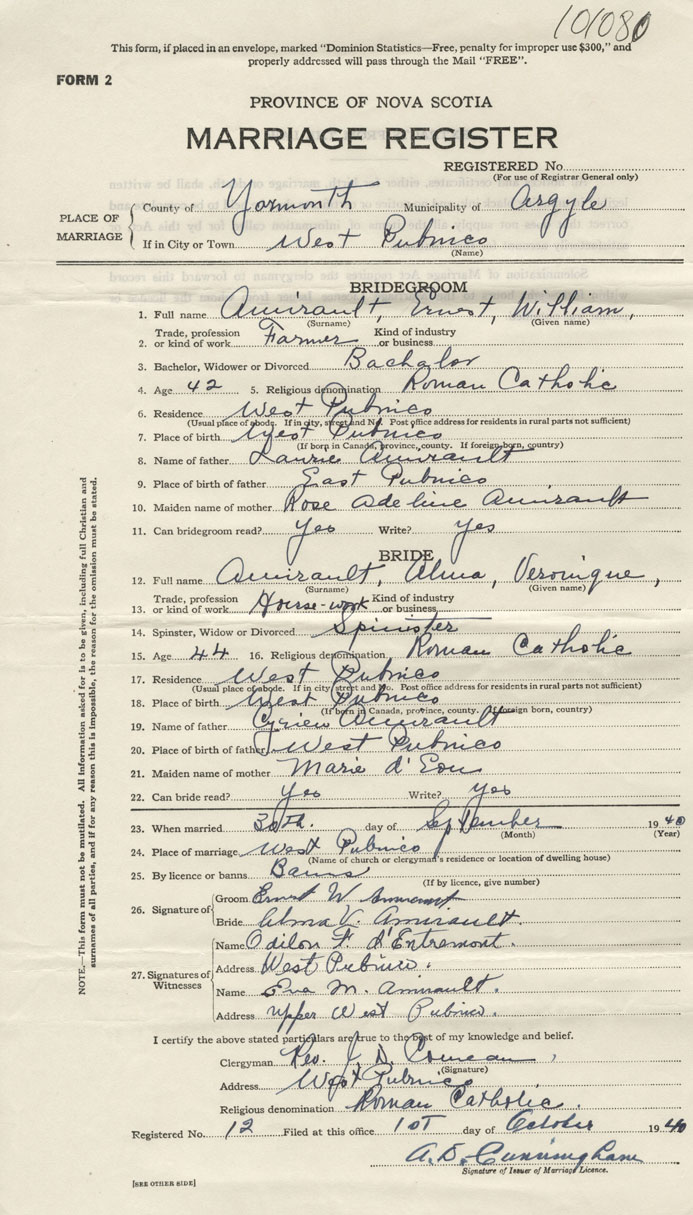 101080
This form, if placed in an envelope, marked "Dominion Statistics—Free, penalty for improper use $300," and
properly addressed will pass through the Mail "FREE".
FORM 2
PROVINCE OF NOVA SCOTIA
MARRIAGE REGISTER
REGISTERED No.
(For use of Registrar General only)
PLACE OF MARRIAGE
County of Yarmouth Municipality of Argyle
If in City or Town West Pubnico
(Name)
BRIDEGROOM
1. Full name Amirault, Ernest, William,
(Surname) (Given name)
Trade, profession Kind of industry
2. or kind of work Farmer or business
3. Bachelor, Widower or Divorced Bachelor
4. Age 42 5. Religious denomination Roman Catholic
6. Residence West Pubnico
(Usual place of abode. If in city, street and No. Post office address for residents in rural parts not sufficient)
7. Place of birth West Pubnico
(If born in Canada, province, county. If foreign born, country)
8. Name of father Laurie Amirault
9. Place of birth of father East Pubnico
10. Maiden name of mother Rose Adeline Amirault
11. Can bridegroom read? Yes Write? Yes
BRIDE
12. Full name Amirault, Alma, Veronique,
(Surname) (Given name)
Trade, profession Kind of industry
13. or kind of work House-work or business
14. Spinster, Widow or Divorced Spinister
15. Age 44 16. Religious denomination Roman Catholic
17. Residence West Pubnico
(Usual place of abode. If in city, street and No. Post office address for residents in rural parts not sufficient)
18. Place of birth West Pubnico
(If born in Canada, province, county. If foreign born, country)
19. Name of father Cyrien Amirault
20. Place of birth of father West Pubnico
21. Maiden name of mother Marie d'Eon
22. Can bride read? Yes Write? Yes
23. When married 30th. day of September 1940
(Month) (Year)
24. Place of marriage West Pubnico
(Name of church or clergyman's residence or location of dwelling house)
25. By licence or banns Banns
(If by licence, give number)
26. Signature of
Groom Ernest W Amirault
Bride Alma V. Amirault.
27. Signatures of Witnesses
Name Odilon F. d'Entremont.
Address West Pubnico.
Name Eva M. Amirault.
Address Upper West Pubnico.
I certify the above stated particulars are true to the best of my knowledge and belief.
Clergyman Rev. J. D. Comeau,
(Signature)
Address West Pubnico
Religious denomination Roman Catholic.
Registered No. 12 Filed at this office 1st day of October 1940
A. D. Cunningham
Signature of Issuer of Marriage Licence.
[SEE OTHER SIDE]
NOTE.—This form must not be mutilated. All information asked for is to be given, including full Christian and
surnames of all parties, and if for any reason this is impossible, the reason for the omission must be stated.